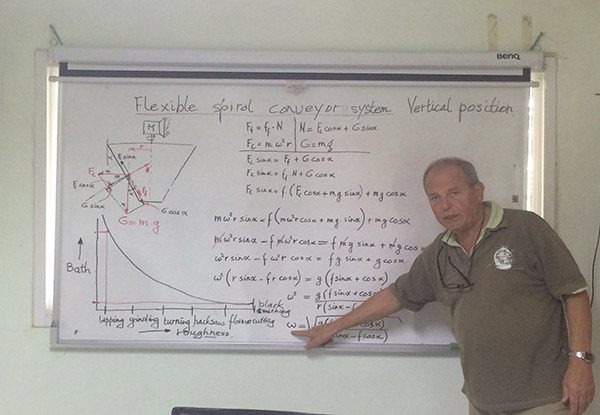 BENQ
Flexible spiral conveyor system. Vertical position.
M
F_f = f · N | N = F_c cosα + G sinα
F_c = m ω² r | G = m·g
F_c sinα = F_f + G cosα
F_c sinα = f · N + G cosα
F_c sinα = f (F_c cosα + mg sinα) + mg cosα
mω²r sinα = f (mω²r cosα + mg sinα) + mg cosα
mω²r sinα − f mω²r cosα = f mg sinα + mg cosα
ω²r sinα − f ω²r cosα = f g sinα + g cosα
ω² (r sinα − f r cosα) = g (f sinα + cosα)
ω² = g (f sinα + cosα)
r (sinα − f cosα)
ω = √ cosα)
sinα − f cosα)
F_c
F_c sinα
F_c cosα
G sinα
G cosα
G = m·g
Bath
lapping grinding turning hacksaw cutting
black
roughness.